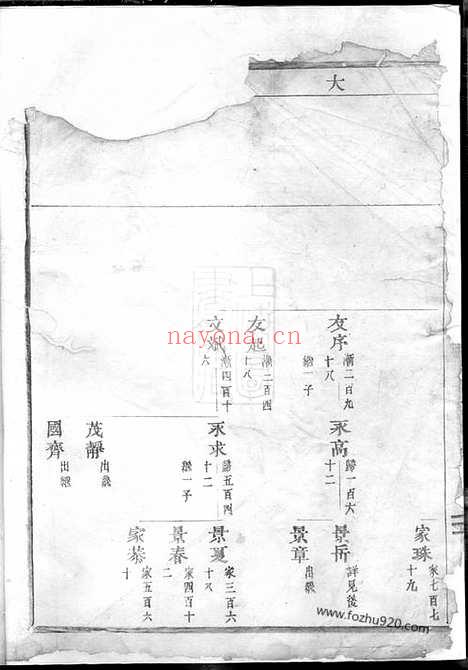 大
家珠 家七百七十九
友序 漸二百九十八 繼一子
永高 歸一百六十二
景岳 詳見後
景章 出繼
友起 漸二百四十八
文斌 漸四百十六
永求 歸五百四十二 繼一子
景夏 家三百六十八
景春 家四百十二
家恭 家五百六十
茂靜 出繼
國齊 出繼
nayona.cn
www.fozhu920.com